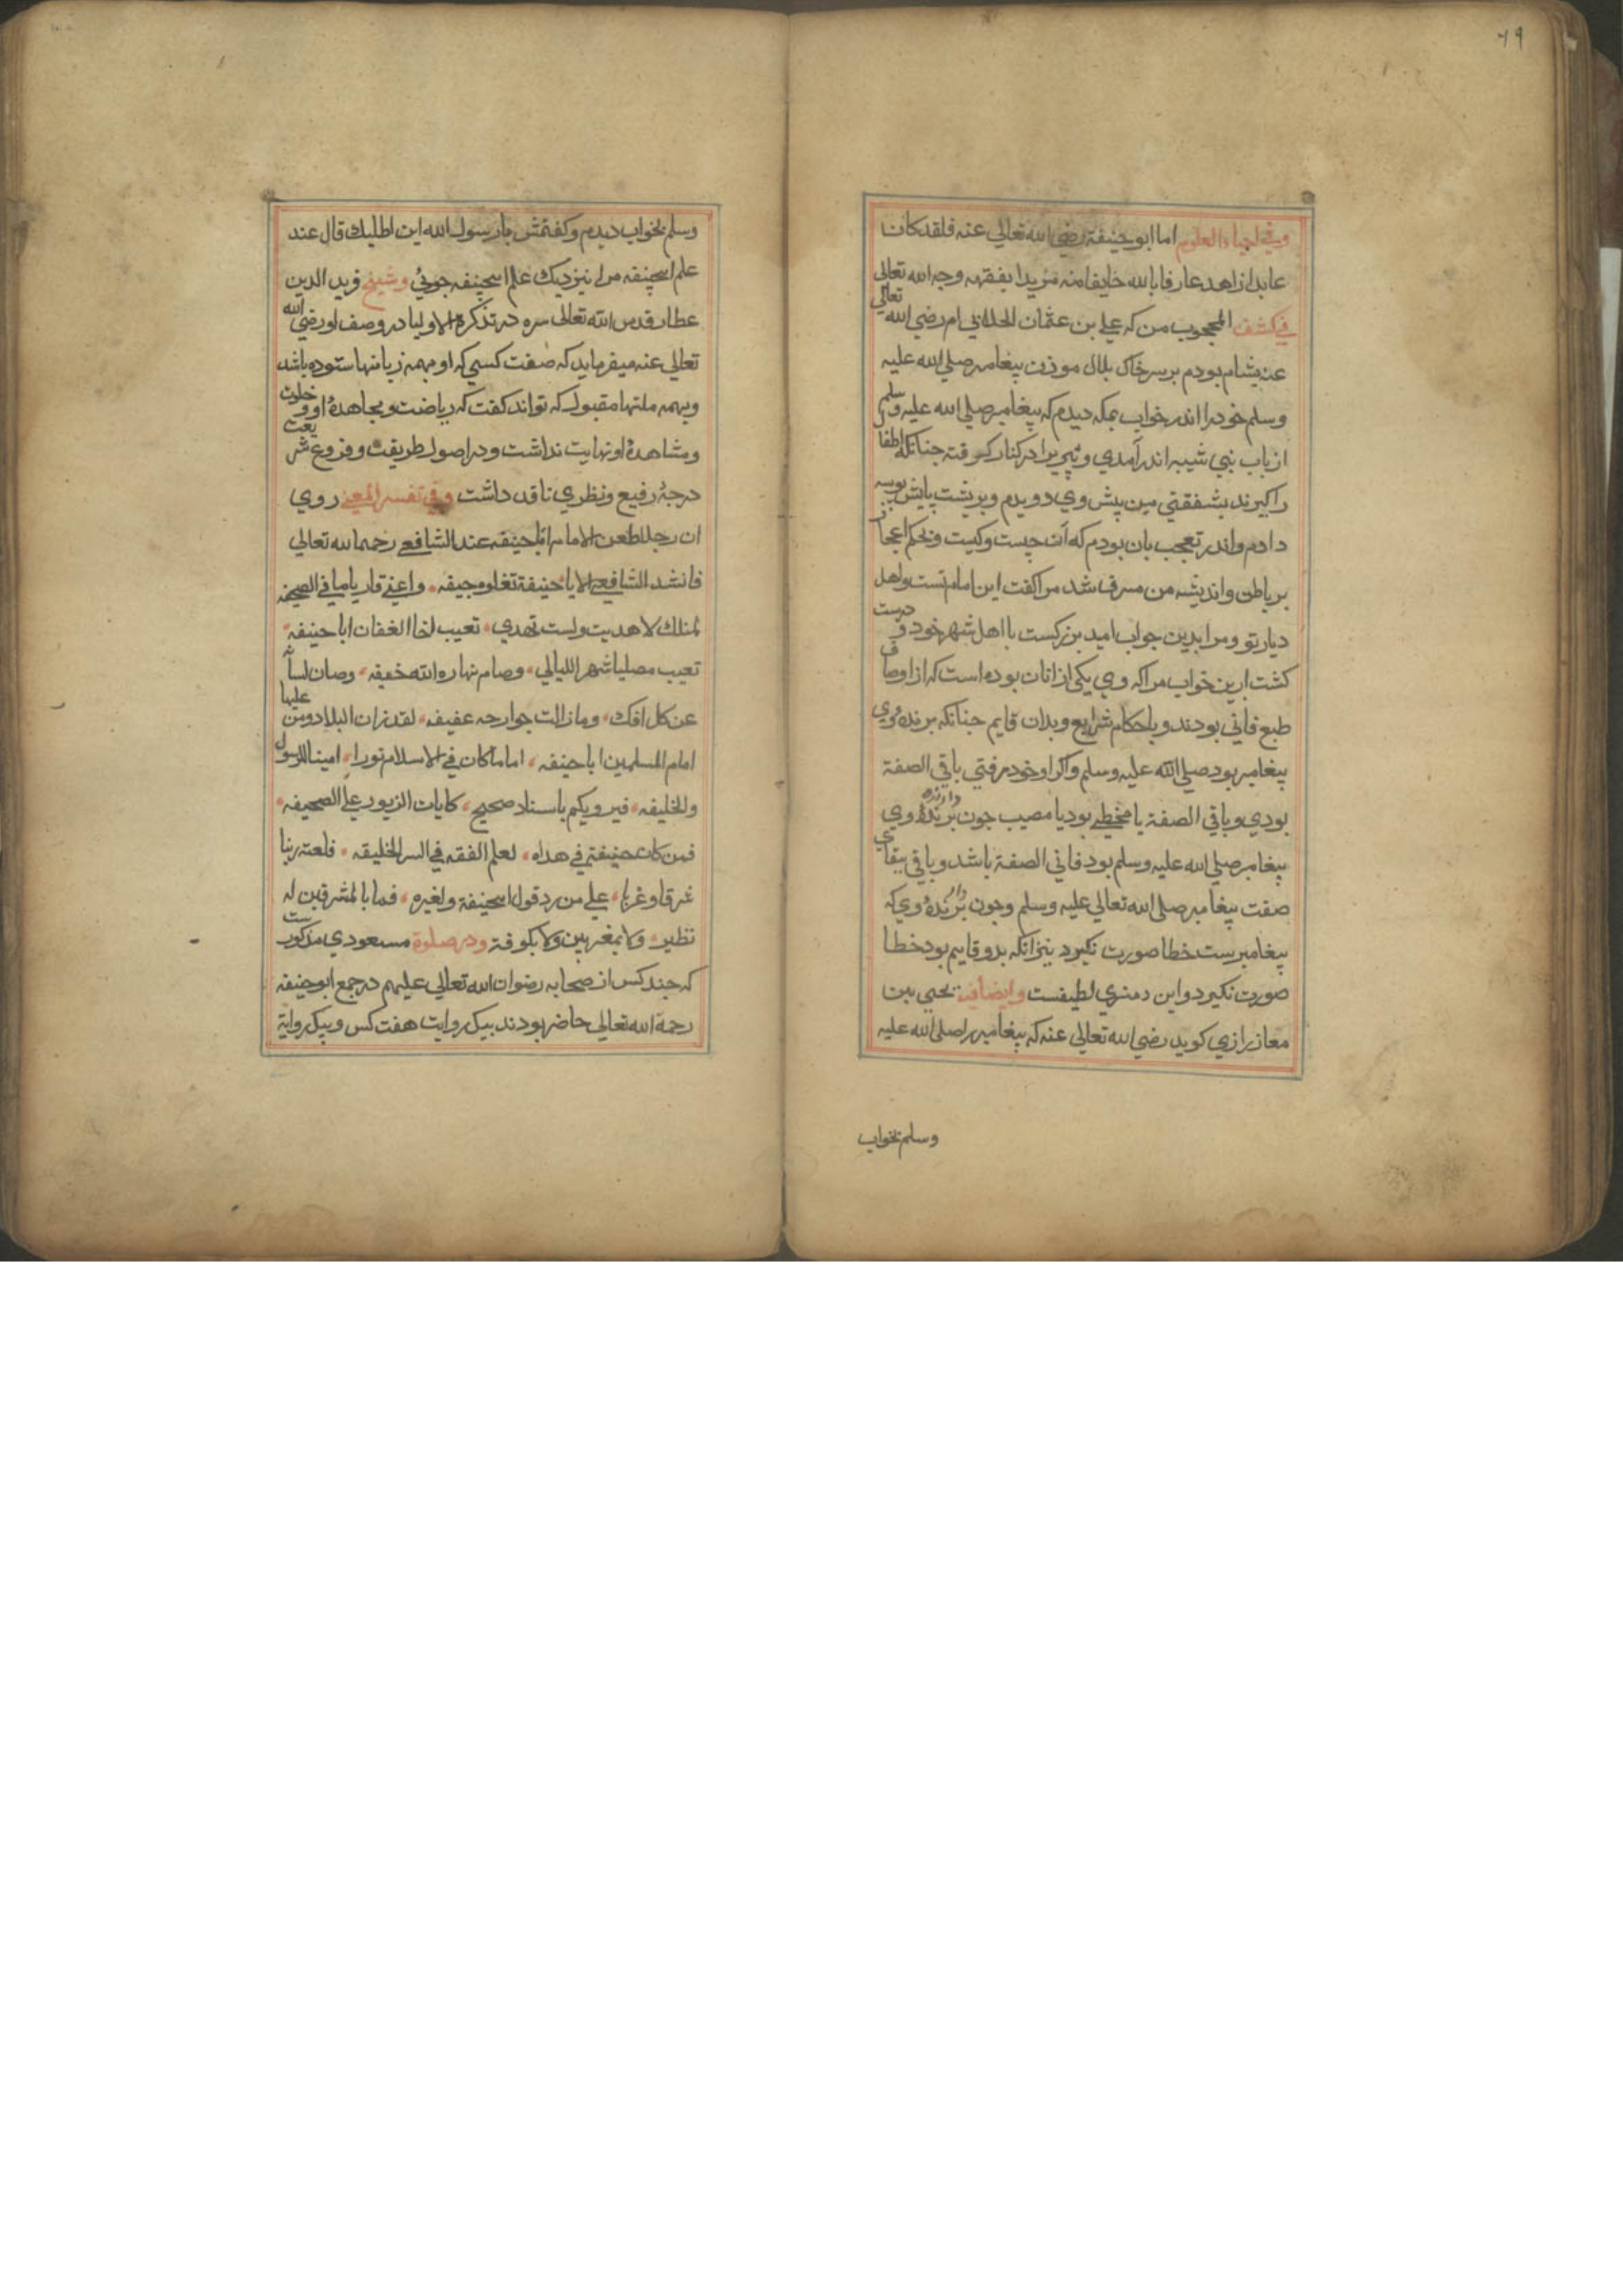 ٦٩
وفي احياء العلوم اما ابو حنيفة رضي الله تعالي عنه فلقد كان
عابدا زاهد عارفا بالله خايفا منه مريدا بفقهه وجه الله تعالي
في كشف المحجوب من كه علي بن عثمان الجلابي ام رضي الله تعالي
عنه بشام بودم بر سر خاك بلال موذن پيغامبر صلي الله عليه
وسلم خود را اندر خواب بمكه ديدم كه پيغامبر صلي الله عليه وسلم
از باب بني شيبه اندر آمدي و پيري را در كنار كرفته جنانكه اطفا
را كيرند بشفقتي من پيش وي دويدم و بر پشت پايش بوسه
دادم و اندر تعجب بان بودم كه آن چيست و كيست و بحكم اعجاز
بر باطن و انديشه من مسرف شد مرا كفت اين امام تست و اهل
ديار تو و مرا بدين جواب اميد بزركست با اهل شهر خود و درست
كشت ازين خواب مرا كه وي يكي از انان بوده است كه از اوصاف
طبع فاني بودند و باحكام شرايع و بدان قايم جنانكه برنده وي
پيغامبر بود صلي الله عليه وسلم و اكر او خود رفتي باقي الصفة
بودي و باقي الصفة يا مخطي بود يا مصيب جون برنده دارنده وي
پيغامبر صلي الله عليه وسلم بود فاني الصفة باشد و باقي ببقاي
صفت پيغامبر صلي الله تعالي عليه وسلم وجون برنده دار وي كه
پيغامبرست خطا صورت نكيرد نيز انكه بدو قايم بود خطا
صورت نكيرد و اين رمزي لطيفست وايضا فيه يحيي بن
معاز رازي كويد رضي الله تعالي عنه كه پيغامبر را صلي الله عليه
وسلم بخواب
وسلم بخواب ديدم و كفتمش يا رسول الله اين اطلبك قال عند
علم ابيحنيفه مرا نيز ديك علم ابيحنيفه جوئي و شيخ فريد الدين
عطار قدس الله تعالي سره در تذكرة الاوليا در وصف او رضي الله
تعالي عنه ميفرمايد كه صفت كسي كه او بهمه زبانها ستوده باشد
و بهمه ملتها مقبول كه تواند كفت كه رياضت و مجاهدهٔ او و خلوت
و مشاهدهٔ او نهايت نداشت و در اصول طريقت و فروع شريعت
درجهٔ رفيع و نظري ناقد داشت وفي تفسير المعني روي
ان رجلا طعن الامام ابا حنيفه عند الشافعي رحمه الله تعالي
فانشد الشافعي الا يا حنيفة تغلوه جيفه واعني قار يا ما في الصحيفه
لمثلك لا هديت ولست تهدي تعيب اخا الغفان ابا حنيفه
تعيب مصليا شهر الليالي وصام نهاره الله خفيفه وصان لسانه
عن كل افك وما زالت جوارحه عفيفه لقد زان البلاد ومن عليها
امام المسلمين ابا حنيفه اماما كان في الاسلام نورا امينا للرسول
وللخليفه فيرويكم باسناد صحيح كايات الزبور علي الصحيفه
فمن كان حنيفة في هداه لعلم الفقه في السر الخليقه فلعنة ربنا
شرقا وغربا علي من رد قول ابيحنيفة ولغيره فما بالمشرقين له
نظير ولا بمغربين ولا بكوفة ودر صلوة مسعودي مذكورست
كه جند كس از صحابه رضوان الله تعالي عليهم در جمع ابو حنيفه
رحمة الله تعالي حاضر بودند بيك روايت هفت كس و بيك رواية